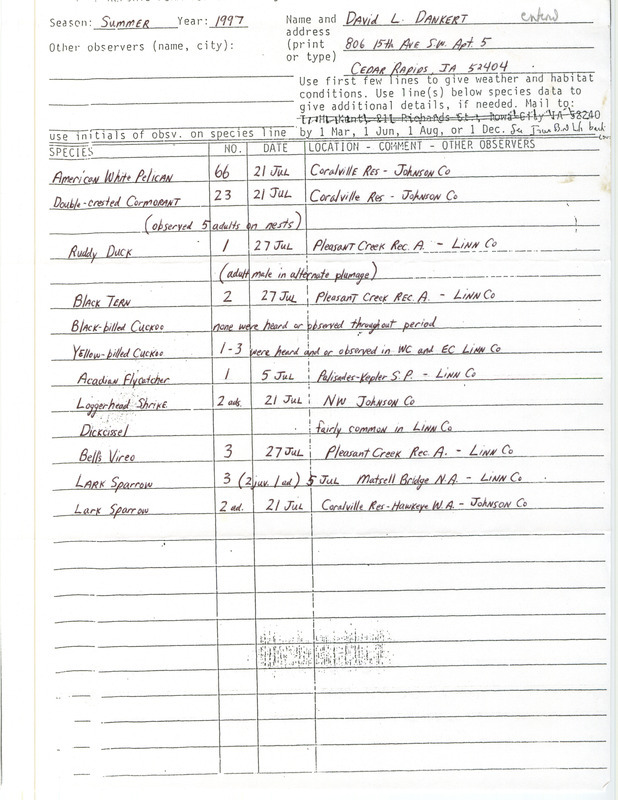 Season: Summer Year: 1997
Name and David L. Dankert
address
Other observers (name, city):
(print 806 15th Ave S.W. Apt. 5
or type)
Cedar Rapids, IA 52404
Use first few lines to give weather and habitat
conditions. Use line(s) below species data to
give additional details, if needed. Mail to:
use initials of obsv. on species line
by 1 Mar, 1 Jun, 1 Aug, or 1 Dec.
SPECIES NO. DATE LOCATION - COMMENT - OTHER OBSERVERS
American White Pelican 66 21 Jul Coralville Res - Johnson Co
Double-crested Cormorant 23 21 Jul Coralville Res - Johnson Co
(observed 5 adults on nests)
Ruddy Duck 1 27 Jul Pleasant Creek Rec. A. - Linn Co
(adult male in alternate plumage)
Black Tern 2 27 Jul Pleasant Creek Rec. A. - Linn Co
Black-billed Cuckoo none were heard or observed throughout period
Yellow-billed Cuckoo 1-3 were heard and or observed in WC and EC Linn Co
Acadian Flycatcher 1 5 Jul Palisades-Kepler S.P. - Linn Co
Loggerhead Shrike 2 ads. 21 Jul NW Johnson Co
Dickcissel fairly common in Linn Co
Bell's Vireo 3 27 Jul Pleasant Creek Rec. A. - Linn Co
Lark Sparrow 3 (2 juv. 1 ad.) 5 Jul Matsell Bridge N.A. - Linn Co
Lark Sparrow 2 ad. 21 Jul Coralville Res-Hawkeye W.A. - Johnson Co